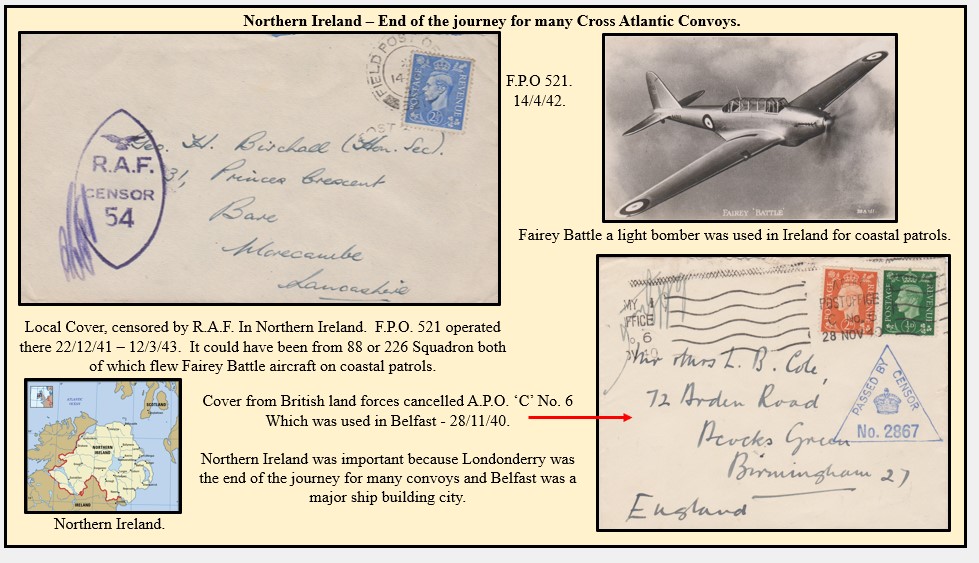 Northern Ireland – End of the journey for many Cross Atlantic Convoys.
FIELD POST OF
14
POSTAGE
REVENUE
2½
OST
R.A.F.
CENSOR
54
Geo. H. Birchall (Hon. Sec).
31, Princes Crescent
Bare
Morecambe
Lancashire
F.P.O 521.
14/4/42.
FAIREY 'BATTLE'
Fairey Battle a light bomber was used in Ireland for coastal patrols.
Local Cover, censored by R.A.F. In Northern Ireland.  F.P.O. 521 operated
there 22/12/41 – 12/3/43.  It could have been from 88 or 226 Squadron both
of which flew Fairey Battle aircraft on coastal patrols.
ATLANTIC
OCEAN
SCOTLAND
NORTHERN
IRELAND
IRELAND
Northern Ireland.
Cover from British land forces cancelled A.P.O. ‘C’ No. 6
Which was used in Belfast - 28/11/40.
Northern Ireland was important because Londonderry was
the end of the journey for many convoys and Belfast was a
major ship building city.
MY
FFICE
No. 6
POST OFFICE
28 NOV 40
REVENUE
PASSED BY CENSOR
No. 2867
Mr & Mrs L. B. Cole,
72 Arden Road
Acocks Green
Birmingham 27
England